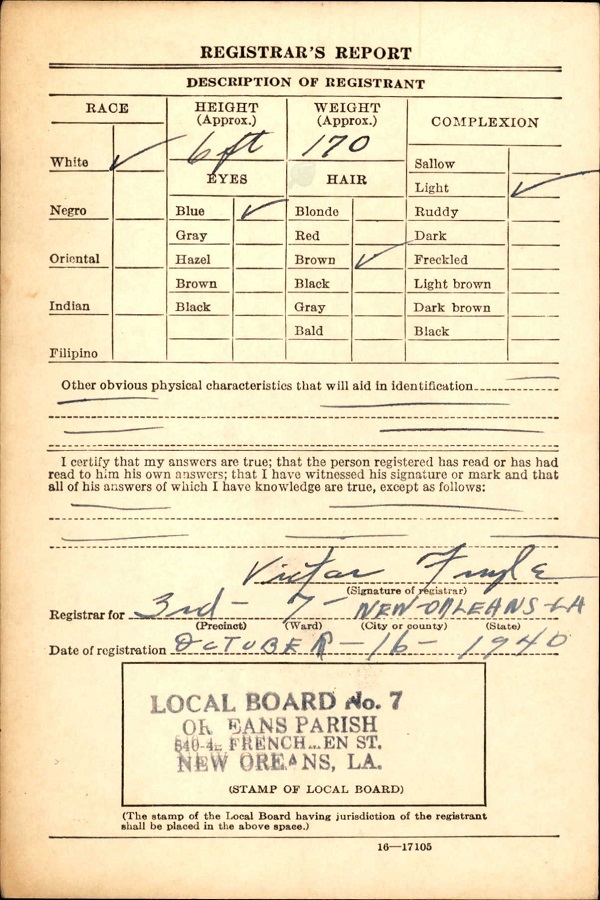 REGISTRAR'S REPORT
DESCRIPTION OF REGISTRANT
RACE
HEIGHT
(Approx.)
WEIGHT
(Approx.)
COMPLEXION
6 ft
170
White
Sallow
EYES
HAIR
Light
Negro
Blue
Blonde
Ruddy
Gray
Red
Dark
Oriental
Hazel
Brown
Freckled
Brown
Black
Light brown
Indian
Black
Gray
Dark brown
Bald
Black
Filipino
Other obvious physical characteristics that will aid in identification
I certify that my answers are true; that the person registered has read or has had
read to him his own answers; that I have witnessed his signature or mark and that
all of his answers of which I have knowledge are true, except as follows:
Victor
(Signature of registrar)
Registrar for 3rd - 7 - NEW-ORLEANS-LA
(Precinct) (Ward) (City or county) (State)
Date of registration OCTOBER - 16 - 1940
LOCAL BOARD No. 7
PARISH
ST.
NEW LA.
(STAMP OF LOCAL BOARD)
(The stamp of the Local Board having jurisdiction of the registrant
shall be placed in the above space.)
16—17105